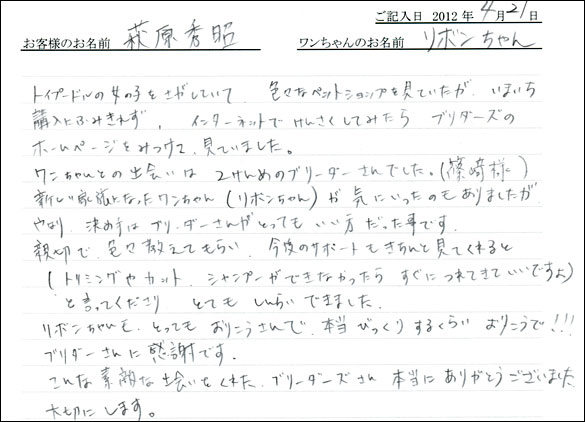 ご記入日 2012年 4月21日
お客様のお名前 萩原秀昭 ワンちゃんのお名前 リボンちゃん
トイプードルの女の子をさがしていて 色々なペットショップを見ていたが いまいち
購入にふみきれず、 インターネットでけんさくしてみたら ブリーダーズの
ホームページをみつけて、見ていました。
ワンちゃんとの出会いは 2けんめのブリーダーさんでした。(篠崎様)
新しい家族となったワンちゃん(リボンちゃん)が 気にいったのもありましたが
やはり 決め手は ブリーダーさんがとっても いい方だった事です。
親切で、色々教えてもらい、今後のサポートもきちんと見てくれると
(トリミングやカット、シャンプーができなかったら すぐにつれてきていいですよ)
と言ってくださり とても しんらいできました。
リボンちゃんも、とっても おりこうさんで、本当 びっくりするくらい おりこうで!!!
ブリーダーさんに感謝です。
こんな 素敵な出会いをくれた、ブリーダーズさん 本当に ありがとうございました
大切にします。